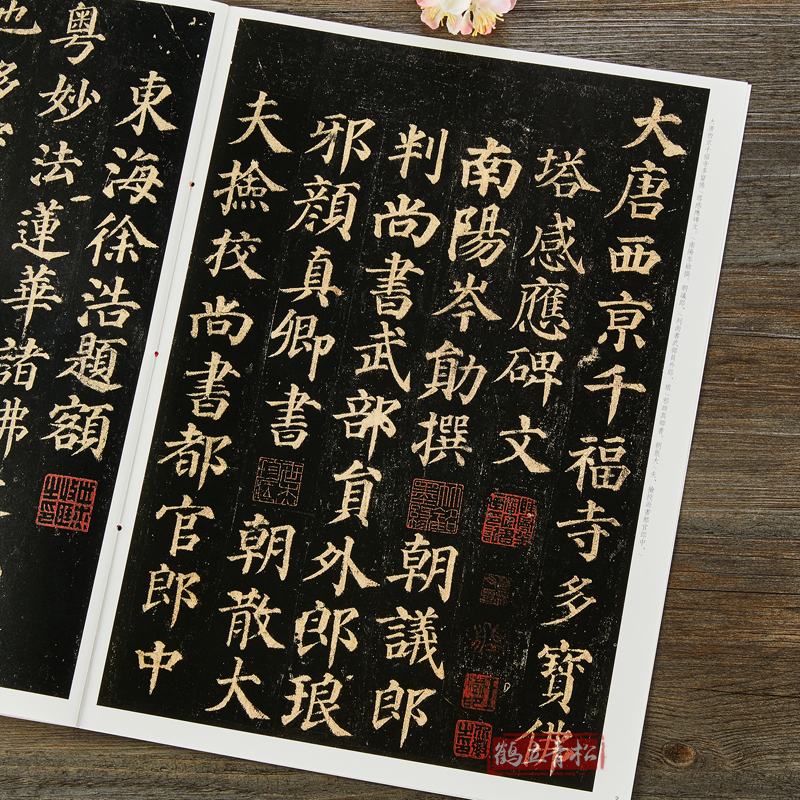 大唐西京千福寺多寶佛
塔感應碑文
南陽岑勛撰
朝議郎
判尚書武部員外郎琅
邪顔真卿書
朝散大
夫撿校尚書都官郎中
東海徐浩題額
粵妙法蓮華諸佛
也
鶴立青松